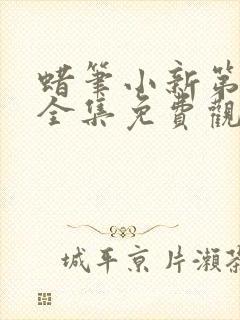 蜡筆小新第
全集免費觀
城平京 片瀨茶